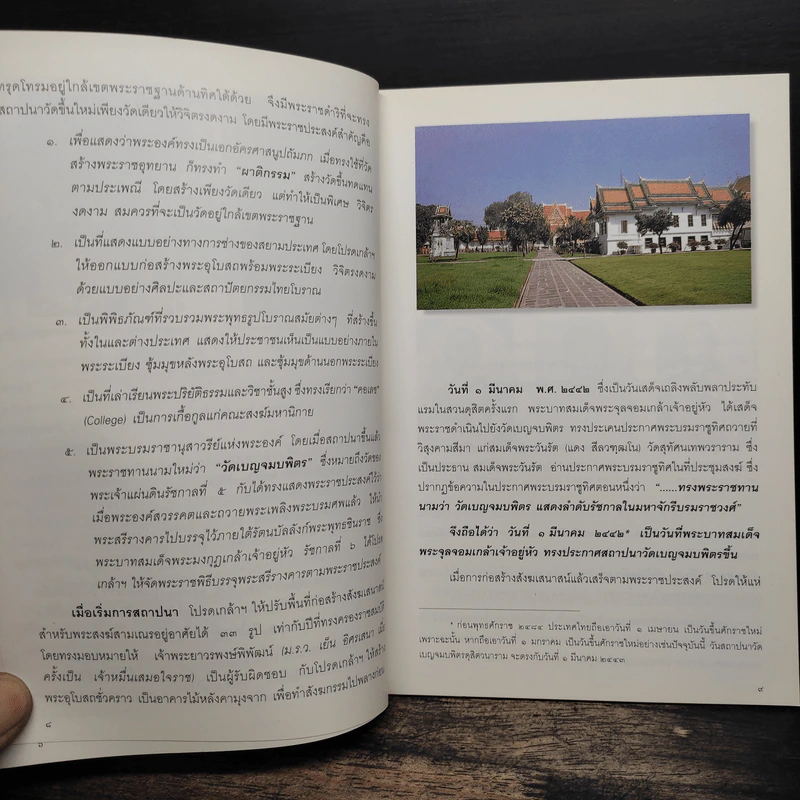 ทรุดโทรมอยู่ใกล้เขตพระราชฐานด้านทิศใต้ด้วย จึงมีพระราชดำริที่จะทรง
สถาปนาวัดขึ้นใหม่เพียงวัดเดียวให้วิจิตรงดงาม โดยมีพระราชประสงค์สำคัญคือ
๑. เพื่อแสดงว่าพระองค์ทรงเป็นเอกอัครศาสนูปถัมภก เมื่อทรงใช้ที่วัด
สร้างพระราชอุทยาน ก็ทรงทำ “ผาติกรรม” สร้างวัดขึ้นทดแทน
ตามประเพณี โดยสร้างเพียงวัดเดียว แต่ทำให้เป็นพิเศษ วิจิตร
งดงาม สมควรที่จะเป็นวัดอยู่ใกล้เขตพระราชฐาน
๒. เป็นที่แสดงแบบอย่างทางการช่างของสยามประเทศ โดยโปรดเกล้าฯ
ให้ออกแบบก่อสร้างพระอุโบสถพร้อมพระระเบียง วิจิตรงดงาม
ด้วยแบบอย่างศิลปะและสถาปัตยกรรมไทยโบราณ
๓. เป็นพิพิธภัณฑ์ที่รวบรวมพระพุทธรูปโบราณสมัยต่างๆ ที่สร้างขึ้น
ทั้งในและต่างประเทศ แสดงให้ประชาชนเห็นเป็นแบบอย่างภายใน
พระระเบียง ซุ้มมุขหลังพระอุโบสถ และซุ้มมุขด้านนอกพระระเบียง
๔. เป็นที่เล่าเรียนพระปริยัติธรรมและวิชาชั้นสูง ซึ่งทรงเรียกว่า “คอเลช”
(College) เป็นการเกื้อกูลแก่คณะสงฆ์มหานิกาย
๕. เป็นพระบรมราชานุสาวรีย์แห่งพระองค์ โดยเมื่อสถาปนาขึ้นแล้ว
พระราชทานนามใหม่ว่า “วัดเบญจมบพิตร” ซึ่งหมายถึงวัดของ
พระเจ้าแผ่นดินรัชกาลที่ ๕ กับได้ทรงแสดงพระราชประสงค์ไว้ว่า
เมื่อพระองค์สวรรคตและถวายพระเพลิงพระบรมศพแล้ว ให้นำ
พระสรีรางคารไปบรรจุไว้ภายใต้รัตนบัลลังก์พระพุทธชินราช ซึ่ง
พระบาทสมเด็จพระมงกุฎเกล้าเจ้าอยู่หัว รัชกาลที่ ๖ ได้โปรด
เกล้าฯ ให้จัดพระราชพิธีบรรจุพระสรีรางคารตามพระราชประสงค์
เมื่อเริ่มการสถาปนา โปรดเกล้าฯ ให้ปรับพื้นที่ก่อสร้างสังฆเสนาสน์
สำหรับพระสงฆ์สามเณรอยู่อาศัยได้ ๓๓ รูป เท่ากับปีที่ทรงครองราชสมบัติ
โดยทรงมอบหมายให้ เจ้าพระยาวรพงษ์พิพัฒน์ (ม.ร.ว. เย็น อิศรเสนา เมื่อ
ครั้งเป็น เจ้าหมื่นเสมอใจราช) เป็นผู้รับผิดชอบ กับโปรดเกล้าฯ ให้สร้าง
พระอุโบสถชั่วคราว เป็นอาคารไม้หลังคามุงจาก เพื่อทำสังฆกรรมไปพลางก่อน
๘
๖
วันที่ ๑ มีนาคม พ.ศ. ๒๔๔๒ ซึ่งเป็นวันเสด็จเถลิงพลับพลาประทับ
แรมในสวนดุสิตครั้งแรก พระบาทสมเด็จพระจุลจอมเกล้าเจ้าอยู่หัว ได้เสด็จ
พระราชดำเนินไปยังวัดเบญจบพิตร ทรงประเคนประกาศพระบรมราชูทิศถวายที่
วิสุงคามสีมา แก่สมเด็จพระวันรัต (แดง สีลวฑฺฒโน) วัดสุทัศนเทพวราราม ซึ่ง
เป็นประธาน สมเด็จพระวันรัต อ่านประกาศพระบรมราชูทิศในที่ประชุมสงฆ์ ซึ่ง
ปรากฏข้อความในประกาศพระบรมราชูทิศตอนหนึ่งว่า “......ทรงพระราชทาน
นามว่า วัดเบญจมบพิตร แสดงลำดับรัชกาลในมหาจักรีบรมราชวงศ์”
จึงถือได้ว่า วันที่ ๑ มีนาคม ๒๔๔๒* เป็นวันที่พระบาทสมเด็จ
พระจุลจอมเกล้าเจ้าอยู่หัว ทรงประกาศสถาปนาวัดเบญจมบพิตรขึ้น
เมื่อการก่อสร้างสังฆเสนาสน์แล้วเสร็จตามพระราชประสงค์ โปรดให้แห่
* ก่อนพุทธศักราช ๒๔๘๔ ประเทศไทยถือเอาวันที่ ๑ เมษายน เป็นวันขึ้นศักราชใหม่
เพราะฉะนั้น หากถือเอาวันที่ ๑ มกราคม เป็นวันขึ้นศักราชใหม่อย่างเช่นปัจจุบันนี้ วันสถาปนาวัด
เบญจมบพิตรดุสิตวนาราม จะตรงกับวันที่ ๑ มีนาคม ๒๔๔๓
๙